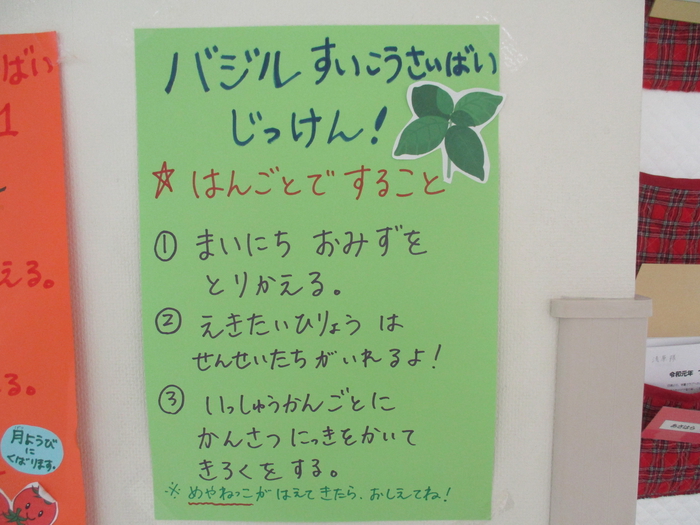 バジルすいこうさいばい
じっけん!
☆はんごとですること
① まいにち おみずを
とりかえる。
② えきたいひりょう は
せんせいたちがいれるよ!
③ いっしゅうかんごとに
かんさつにっきをかいて
きろくをする。
※めやねっこがはえてきたら、おしえてね!
ばい
1
える。
る。
月ようび
に
くばります。
令和元年